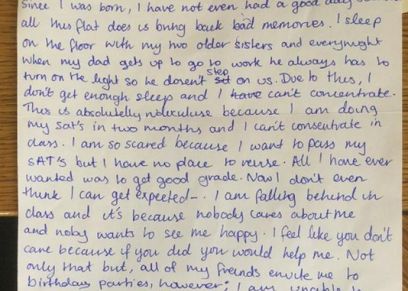 Since I was born, I have not even had a good day
all this flat does is bring back bad memories. I sleep
on the floor with my two older sisters and everynight
when my dad gets up to go to work he always has to
turn on the light so he doesn't step on us. Due to this, I
don't get enough sleep and I have can't concentrate.
This is absolutelly rediculuse because I am doing
my sat's in two months and I can't consentrate in
class. I am so scared because I want to pass my
SAT's but I have no place to revise. All I have ever
wanted was to get good grade. Now I don't even
think I can get expected-. I am falling behind in
class and it's because nobody cares about me
and noby wants to see me happy. I feel like you don't
care because if you did you would help me. Not
only that but, all of my freinds envite me to
birthday parties, however; I am unable to